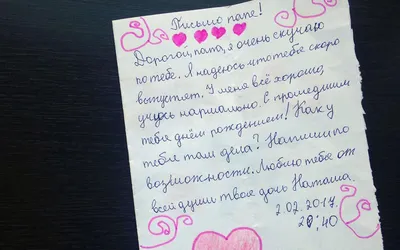 Письмо папе!
Дорогой, папа, я очень скучаю
по тебе. Я надеюсь что тебя скоро
выпустят. У меня всё хорошо,
учусь нормально. с прошедшим
тебя днём рождением! Как у
тебя там дела? Напиши по
возможности. Люблю тебя от
всей души твоя дочь Наташа.
2.02.2017.
20:40